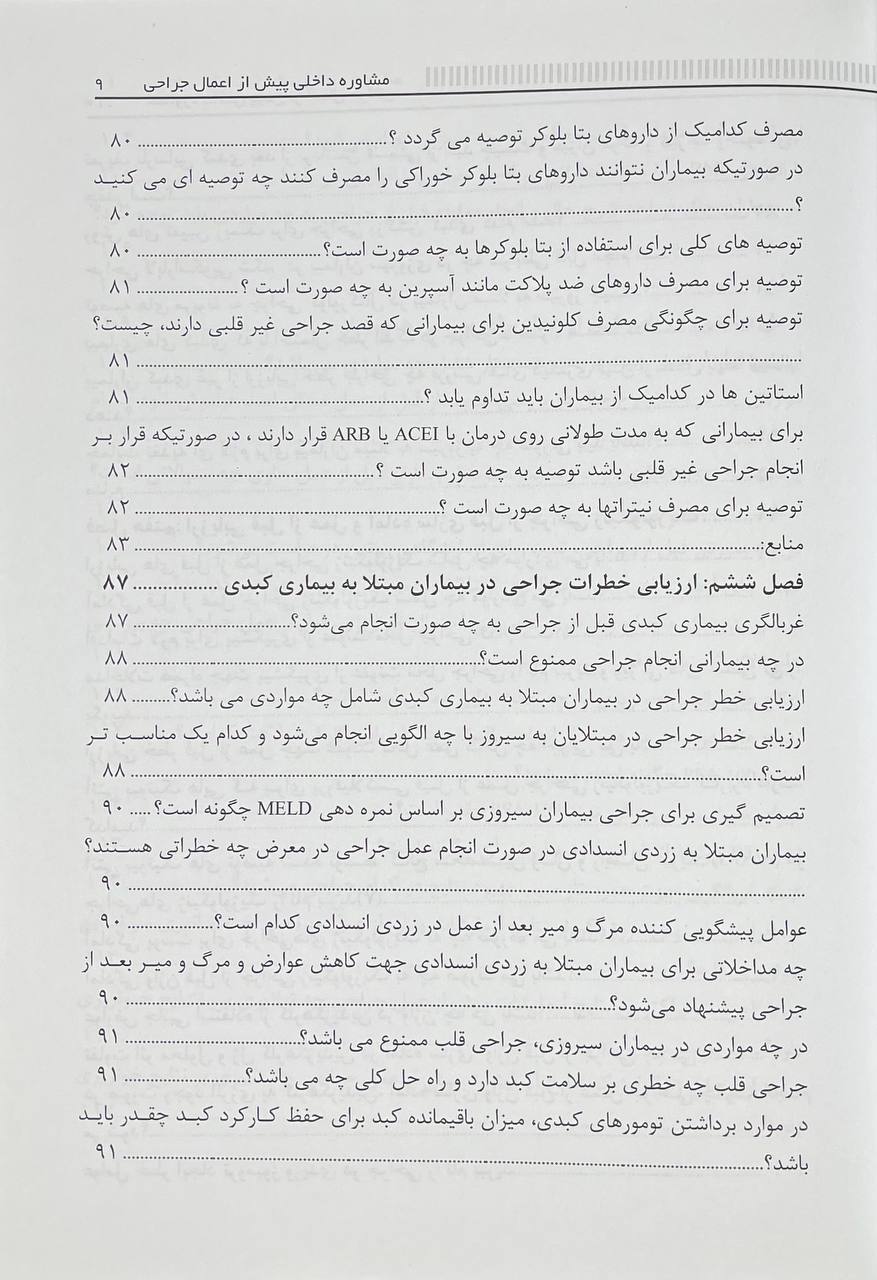 مشاوره داخلی پیش از اعمال جراحی ۹
مصرف کدامیک از داروهای بتا بلوکر توصیه می گردد ؟ ۸۰
در صورتیکه بیماران نتوانند داروهای بتا بلوکر خوراکی را مصرف کنند چه توصیه ای می کنید
؟ ۸۰
توصیه های کلی برای استفاده از بتا بلوکرها به چه صورت است؟ ۸۰
توصیه برای مصرف داروهای ضد پلاکت مانند آسپرین به چه صورت است ؟ ۸۱
توصیه برای چگونگی مصرف کلونیدین برای بیمارانی که قصد جراحی غیر قلبی دارند، چیست؟
۸۱
استاتین ها در کدامیک از بیماران باید تداوم یابد ؟ ۸۱
برای بیمارانی که به مدت طولانی روی درمان با ACEI یا ARB قرار دارند ، در صورتیکه قرار بر
انجام جراحی غیر قلبی باشد توصیه به چه صورت است ؟ ۸۲
توصیه برای مصرف نیتراتها به چه صورت است ؟ ۸۲
منابع: ۸۳
فصل ششم: ارزیابی خطرات جراحی در بیماران مبتلا به بیماری کبدی ۸۷
غربالگری بیماری کبدی قبل از جراحی به چه صورت انجام می‌شود؟ ۸۷
در چه بیمارانی انجام جراحی ممنوع است؟ ۸۸
ارزیابی خطر جراحی در بیماران مبتلا به بیماری کبدی شامل چه مواردی می باشد؟ ۸۸
ارزیابی خطر جراحی در مبتلایان به سیروز با چه الگویی انجام می‌شود و کدام یک مناسب تر
است؟ ۸۸
تصمیم گیری برای جراحی بیماران سیروزی بر اساس نمره دهی MELD چگونه است؟ ۹۰
بیماران مبتلا به زردی انسدادی در صورت انجام عمل جراحی در معرض چه خطراتی هستند؟
۹۰
عوامل پیشگویی کننده مرگ و میر بعد از عمل در زردی انسدادی کدام است؟ ۹۰
چه مداخلاتی برای بیماران مبتلا به زردی انسدادی جهت کاهش عوارض و مرگ و میر بعد از
جراحی پیشنهاد می‌شود؟ ۹۰
در چه مواردی در بیماران سیروزی، جراحی قلب ممنوع می باشد؟ ۹۱
جراحی قلب چه خطری بر سلامت کبد دارد و راه حل کلی چه می باشد؟ ۹۱
در موارد برداشتن تومورهای کبدی، میزان باقیمانده کبد برای حفظ کارکرد کبد چقدر باید
باشد؟ ۹۱